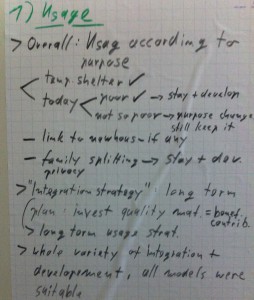 1) Usage
> Overall : Usag according to
purpose
< temp. shelter ✓
today < poor ✓ → stay + develop
not so poor → purpose change
still keep it
– link to newhous – if any
– family splitting → stay + dev.
privacy
> "Integration strategy" : long term
(plan : invest quality mat. = benef.
contrib.
> long term usage strat.
> whole variety of integration +
developement, all models were
suitable